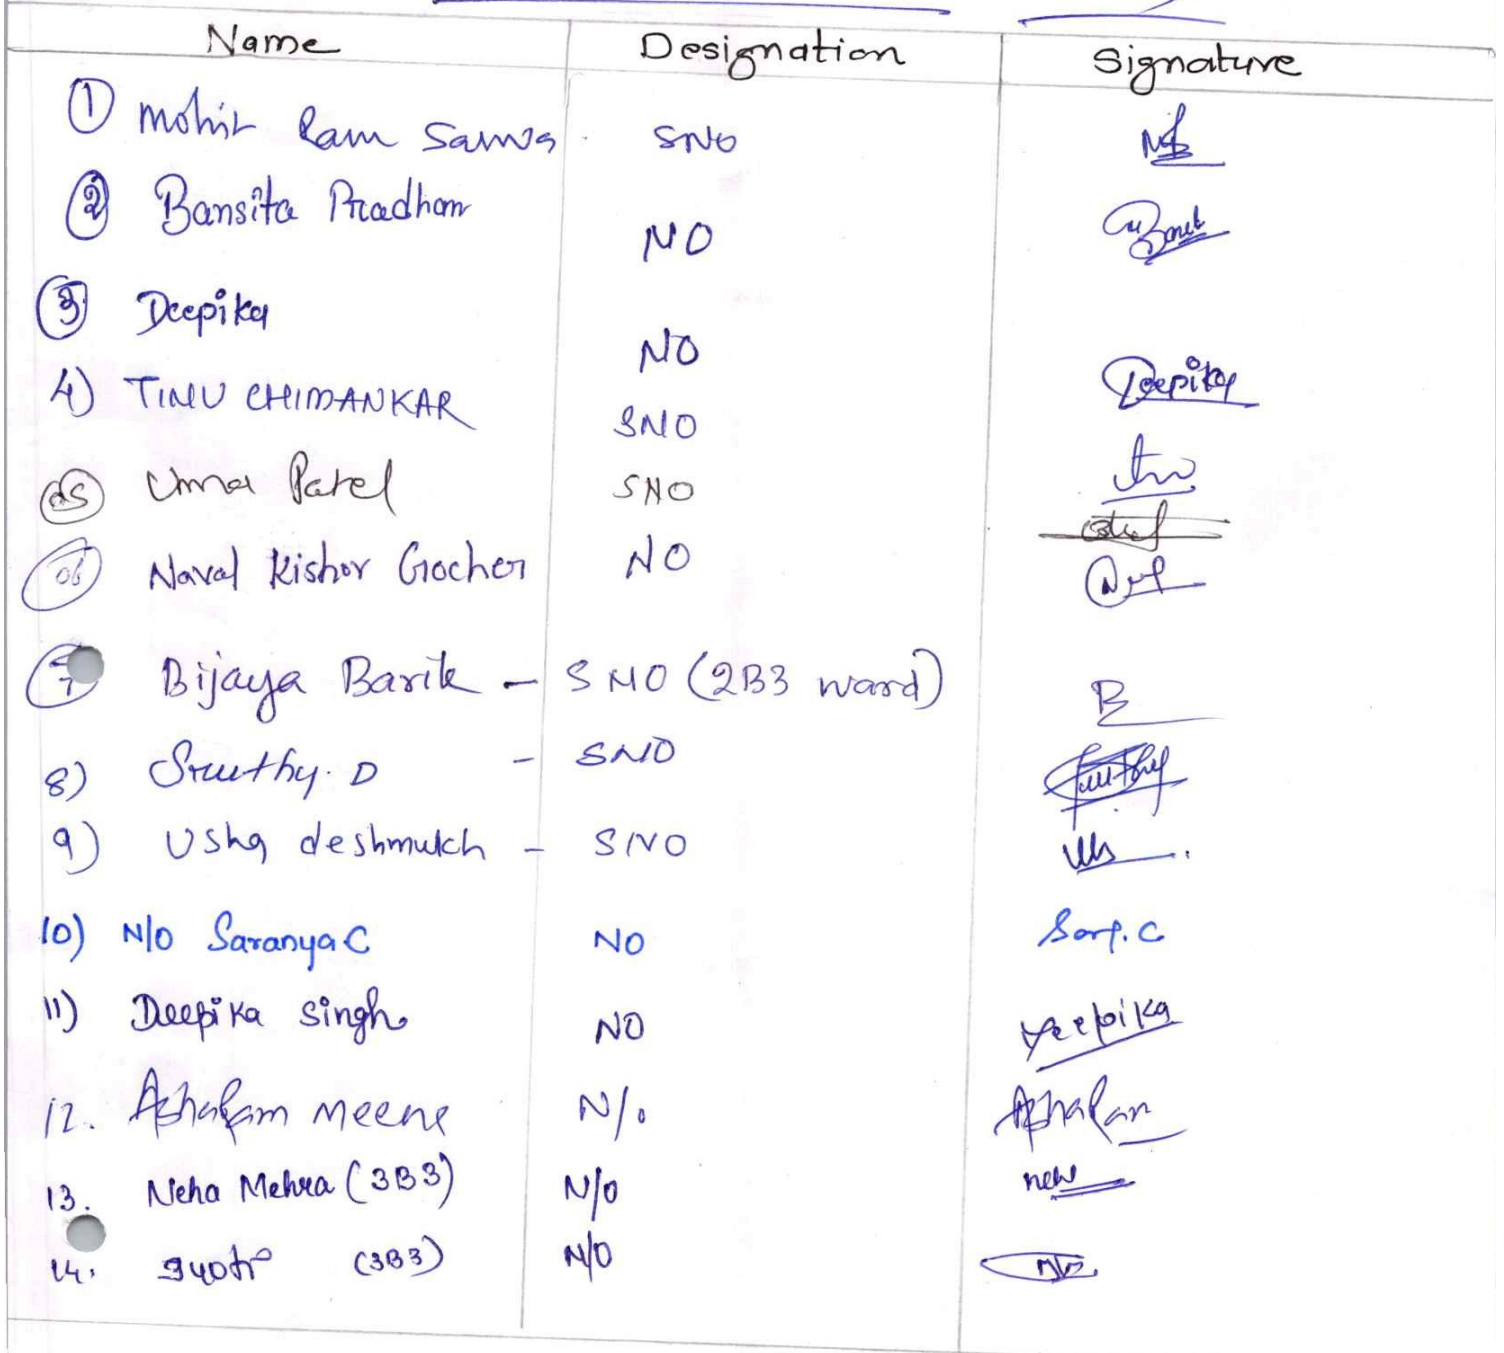 Name Designation Signature
① Mohit Ram Sarwa SNO
② Bansita Pradhan NO
③ Deepika NO Deepika
4) TINU CHIMANKAR SNO
05 Uma Patel SNO
06 Naval Kishor Gocher NO
7 Bijaya Barik - SNO (2B3 ward) B
8) Sruthy. D - SNO Sruthy
9) Usha deshmukh - SNO
10) N/O Saranya C NO
11) Deepika singh NO Deepika
12. Asharam meena N/O Asharam
13. Neha Mehra (3B3) N/O neh
14. Jyoti (3B3) N/O